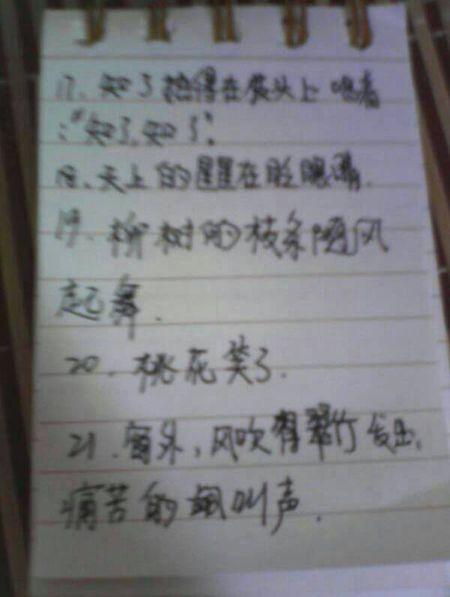 17、知了抬得在枝头上唱着
:"知了,知了".
18、天上的星星在眨眼睛.
19、柳树的枝条随风
起舞.
20、桃花笑了.
21、窗外,风吹着翠竹发出,
痛苦的飒叫声.